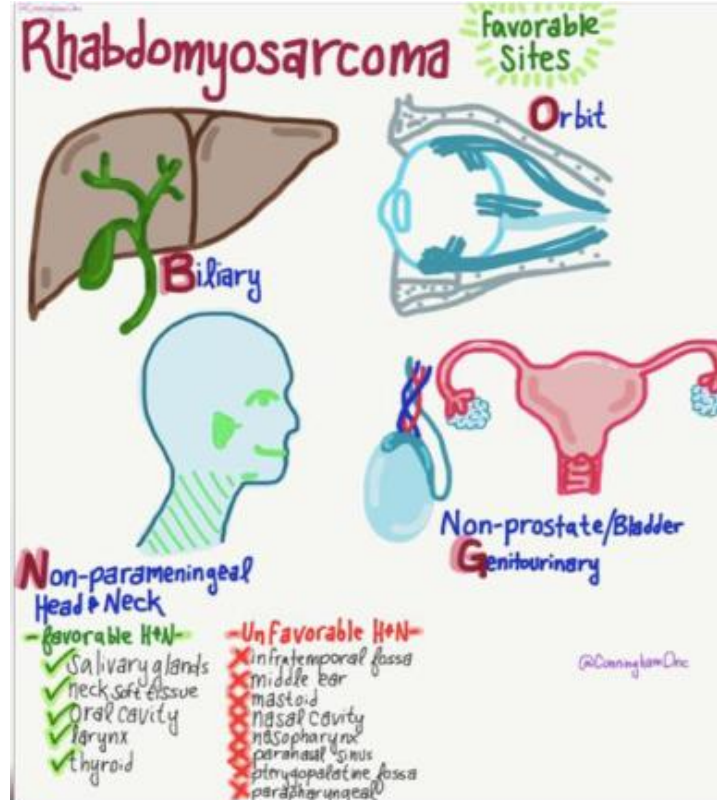 @CunninghamOnc
Rhabdomyosarcoma
Favorable
Sites
Orbit
Biliary
Non-prostate/Bladder
Genitourinary
Non-parameningeal
Head & Neck
-favorable H+N-
salivary glands
neck soft tissue
oral cavity
larynx
thyroid
-Unfavorable H+N-
infratemporal fossa
middle ear
mastoid
nasal cavity
nasopharynx
paranasal sinus
pterygopalatine fossa
parapharyngeal
@CunninghamOnc